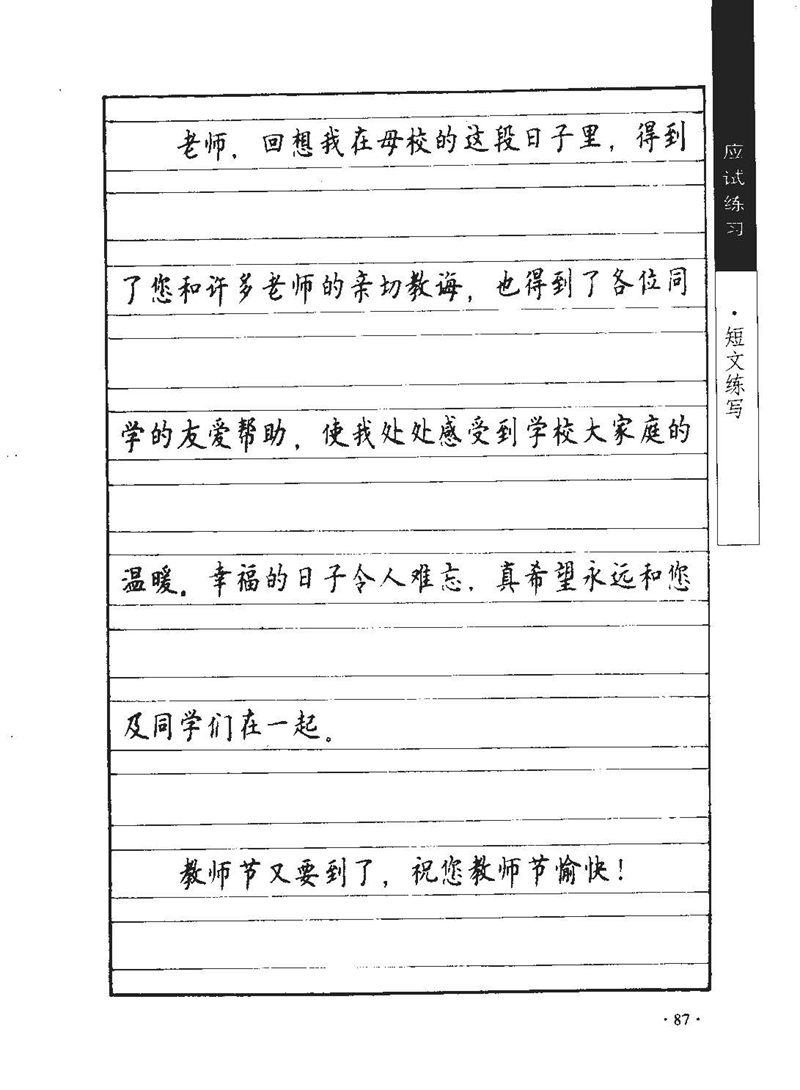 老师，回想我在母校的这段日子里，得到
了您和许多老师的亲切教诲，也得到了各位同
学的友爱帮助，使我处处感受到学校大家庭的
温暖。幸福的日子令人难忘，真希望永远和您
及同学们在一起。
教师节又要到了，祝您教师节愉快！
应试练习
·短文练写
·87·